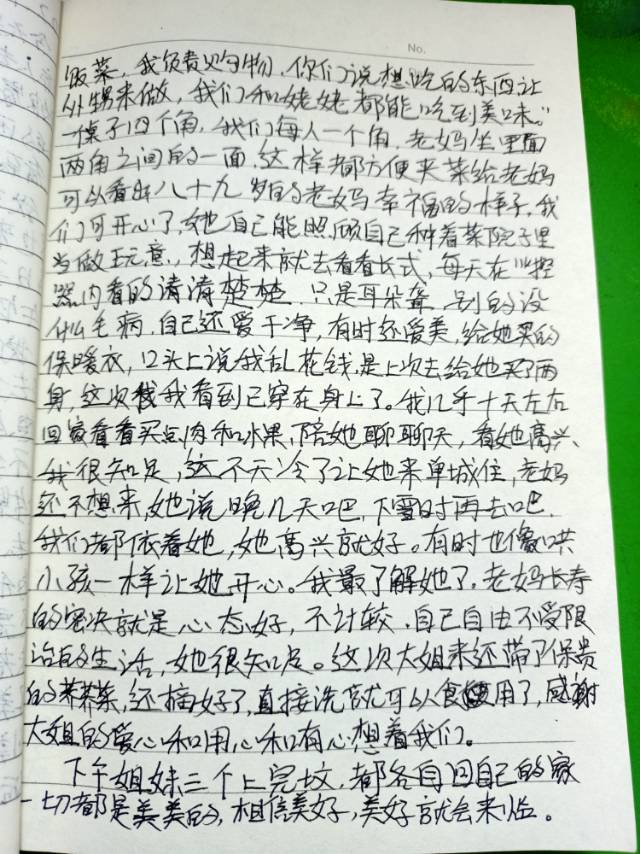 No.
饭菜，我负责购物，你们说想吃的东西让
外甥来做，我们和姥姥都能吃到美味。”
一桌子四个角，我们每人一个角，老妈坐里面
两角之间的一面，这样都方便夹菜给老妈
可以看到八十九岁的老妈幸福的样子，我
们可开心了，她自己能照顾自己种着菜院子里
当做玩意，想起来就去看看长式，每天在监控
器内看的清清楚楚，只是耳朵聋，别的没
什么毛病，自己还爱干净，有时还爱美，给她买的
保暖衣，口头上说我乱花钱，是上次去给她买了两
身，这次我看到已穿在身上了。我几乎十天左右
回家看看买点肉和水果，陪她聊聊天，看她高兴、
我很知足，这不天冷了让她来单城住，老妈
还不想来，她说晚几天吧，下雪时再去吧，
我们都依着她，她高兴就好。有时也像哄
小孩一样让她开心。我最了解她了，老妈长寿
的秘决就是心态好，不计较，自己自由不受限
治的生活，她很知足。这次大姐来还带了保贵
的荠荠菜，还摘好了，直接洗就可以食用了，感谢
大姐的爱心和用心和有心想着我们。
下午姐妹三个上完坟，都各自回自己的家
一切都是美美的，相信美好，美好就会来临。